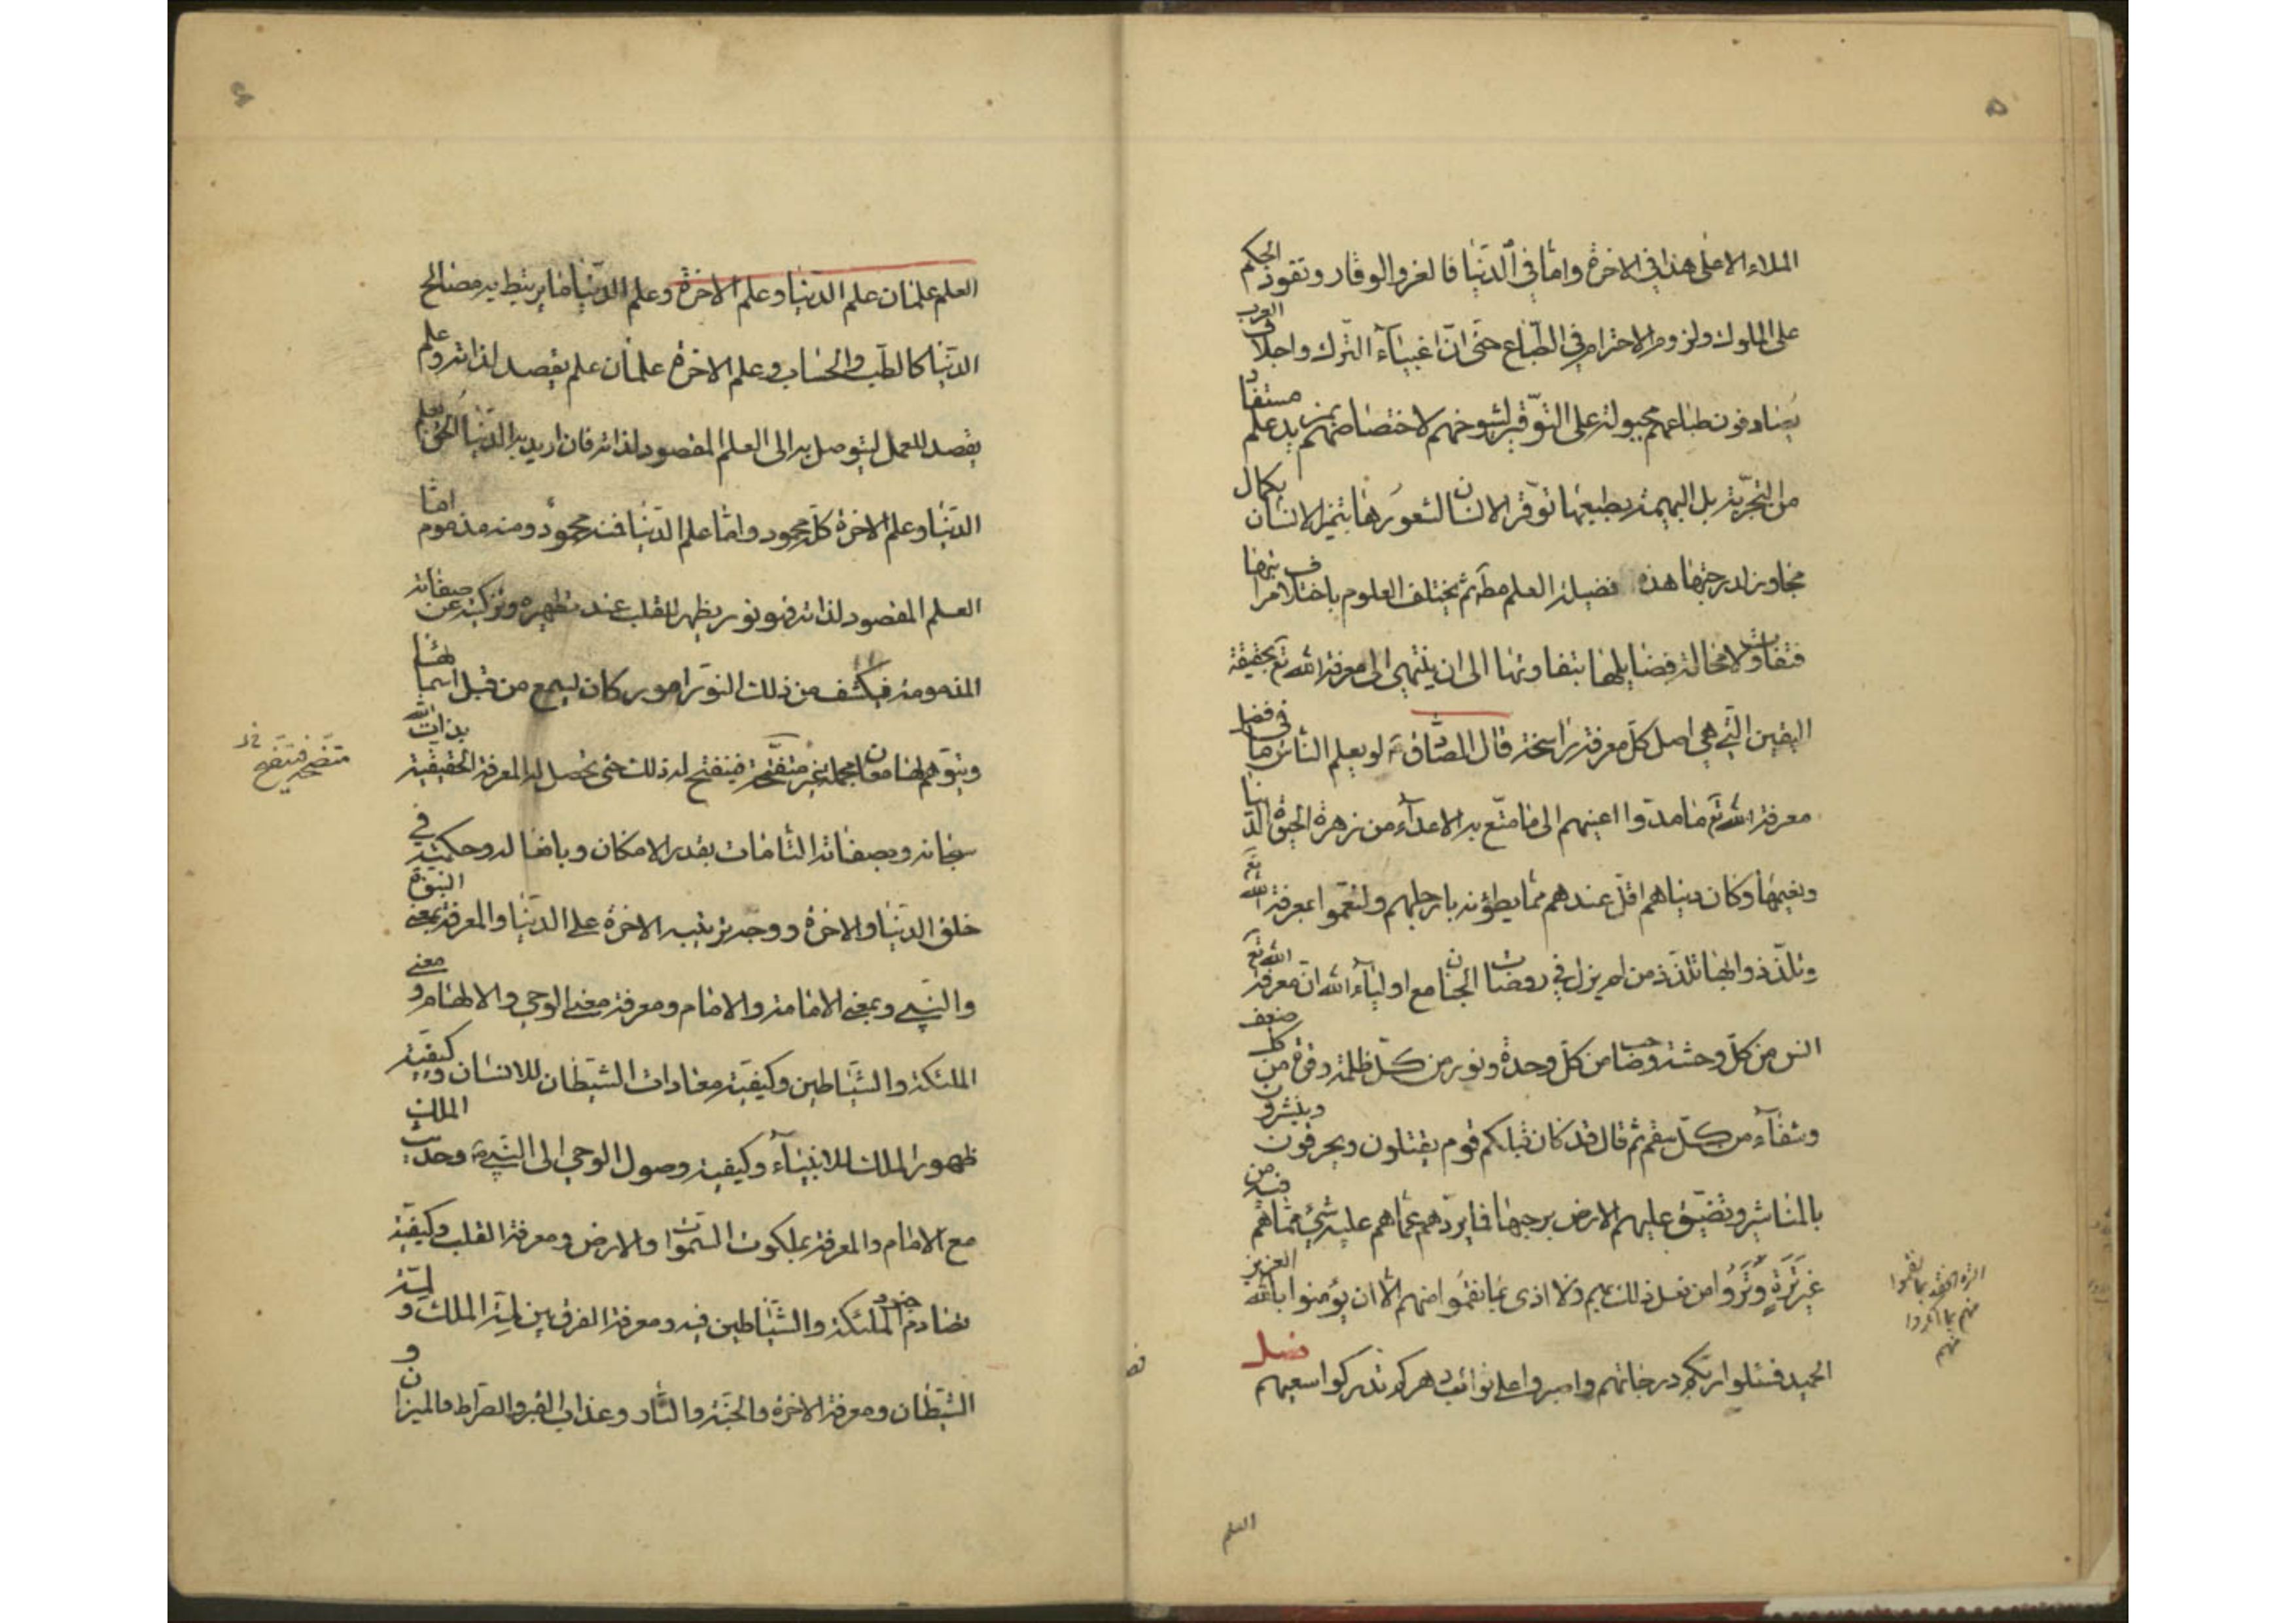 ٥
الملاء الاعلى هذا في الاخرة وامّا في الدّنيا فالعزّ والوقار ونفوذ الحكم
على الملوك ولزوم الاحترام في الطّباع حتّى انّ اغبيآء التّرك واجلاف العرب
يصادفون طباعهم مجبولة على التّوقير لشيوخهم لاختصاصهم بمزيد علم مستفاد
من التّجربة بل البهيمة بطبعها توقّر الانسان لشعورها بتميّز الانسان بكمال
مجاوز لدرجتها هذه فضيلة العلم مطلقا ثمّ يختلف العلوم باختلاف مراتبها
فتفاوت لا محالة فضايلها بتفاوتها الى ان ينتهي الى معرفة الله تع بحقيقة
اليقين الّتي هي اصل كلّ معرفة راسخة قال الصّادق ع لو يعلم النّاس ما في فضل
معرفة الله تع ما مدّوا اعينهم الى ما متّع به الاعدآء من زهرة الحيوة الدّنيا
ونعيمها وكان دنياهم اقلّ عندهم ممّا يطؤنه بارجلهم ولنعّموا بمعرفة الله تع
وتلذّذوا بها تلذّذ من لم يزل في روضات الجنان مع اوليآء الله انّ معرفة الله تع
انس من كلّ وحشة وصاحب من كلّ وحدة ونور من كلّ ظلمة وقوة من كلّ ضعف
وشفآء من كلّ سقم ثم قال قد كان قبلكم قوم يقتلون ويحرقون وينشرون
بالمناشير وتضيق عليهم الارض برحبها فما يردّهم عمّا هم عليه شيء ممّا هم فيه من
غير ترة وتروا من فعل ذلك بهم ولا اذى بما نقموا منهم الّا ان يؤمنوا بالله العزيز
الحميد فسئلوا ربّكم درجاتهم واصبروا على نوائب دهركم تدركوا سعيهم فصل
العلم
٦
العلم علمان علم الدّنيا وعلم الاخرة وعلم الدّنيا ما يرتبط به مصالح
الدّنيا كالطّب والحساب وعلم الاخرة علمان علم يقصد لذاته وعلم
يقصد للعمل ليتوصل به الى العلم المقصود لذاته فان اريد به الدّنيا الحق بعلم
الدّنيا وعلم الاخرة كلّه محمود وامّا علم الدّنيا فمنه محمود ومنه مذموم امّا
العلم المقصود لذاته فهو نور يظهر للقلب عند تطهيره وتزكيته عن صفاته
المذمومة فيكشف من ذلك النّور امور كان يسمع من قبل اسمائها
ويتوهّم لها معان مجملة غير متفتّحة فينفتح له ذلك حتى يحصل له المعرفة الحقيقية بذات الله
سبحانه وبصفاته التّامّات بقدر الامكان وبافعاله وحكمته في
خلق الدّنيا والاخرة ووجه ترتيب الاخرة على الدّنيا والمعرفة بمعنى النبوّة
والنّبي وبمعنى الامامة والامام ومعرفة معنى الوحي والالهام ومعنى
الملئكة والشّياطين وكيفيّة معادات الشيطان للانسان وكيفيّة
ظهور الملك للانبيآء وكيفية وصول الوحي الى النّبي ع وحديث الملك
مع الامام والمعرفة بملكوت السّموات والارض ومعرفة القلب وكيفيّة
تصادم جنود الملئكة والشّياطين فيه ومعرفة الفرق بين لمّة الملك ولمّة
الشّيطان ومعرفة الاخرة والجنّة والنّار وعذاب القبر والصّراط والميزان و